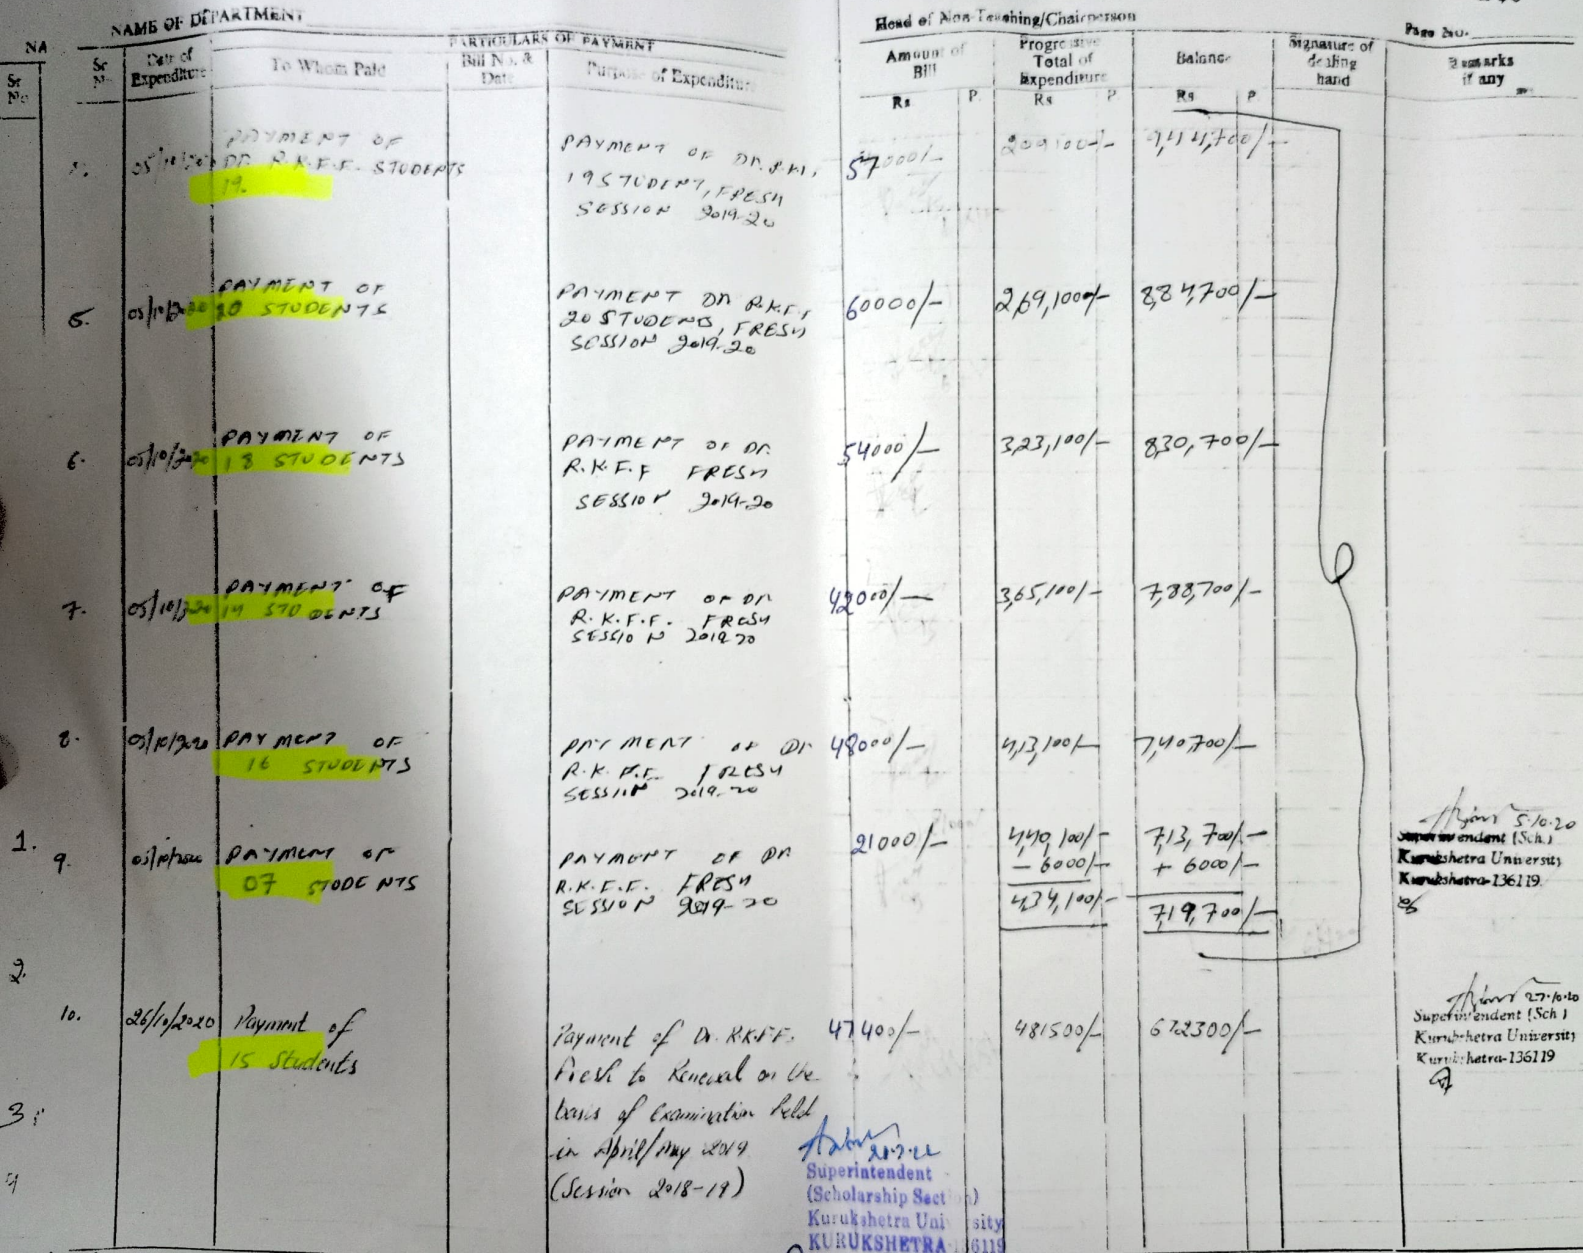 NAME OF DEPARTMENT
Head of Non-Teaching/Chairperson
Page No.
NA
PARTICULARS OF PAYMENT
Sr No
Sr No
Date of Expenditure
To Whom Paid
Bill No. & Date
Purpose of Expenditure
Amount of Bill
Progressive Total of Expenditure
Balance
Signature of dealing hand
Remarks if any
Rs P. Rs P. Rs P
PAYMENT OF
DR. R.K.F.F. STUDENTS
19.
PAYMENT OF DR. R.K.
19 STUDENT, FRESH
SESSION 2019-20
57000/-
209100/-
9,44,700/-
5.
05/10/2020
PAYMENT OF
20 STUDENTS
PAYMENT DR R.K.F.F
20 STUDENTS, FRESH
SESSION 2019-20
60000/-
2,69,100/-
8,84,700/-
6.
05/10/2020
PAYMENT OF
18 STUDENTS
PAYMENT OF DR.
R.K.F.F FRESH
SESSION 2019-20
54000/-
3,23,100/-
830,700/-
7.
05/10/2020
PAYMENT OF
14 STUDENTS
PAYMENT OF DR
R.K.F.F. FRESH
SESSION 2019 20
42000/-
3,65,100/-
7,88,700/-
8.
05/10/2020
PAYMENT OF
16 STUDENTS
PAYMENT OF DR
R.K.F.F. FRESH
SESSION 2019-20
48000/-
4,13,100/-
7,40,700/-
1.
9.
05/10/2020
PAYMENT OF
07 STUDENTS
PAYMENT OF DR
R.K.F.F. FRESH
SESSION 2019-20
21000/-
4,40,100/-
- 6000/-
4,34,100/-
713,700/-
+ 6000/-
719,700/-
5.10.20
Superintendent (Sch.)
Kurukshetra University
Kurukshetra-136119
2.
10.
26/10/2020
Payment of
15 Students
Payment of Dr. R.K.F.F.
Fresh to Renewal on the
basis of Examination held
in April/May 2019
(Session 2018-19)
47400/-
481500/-
672300/-
27.10.20
Superintendent (Sch)
Kurukshetra University
Kurukshetra-136119
3.
Superintendent
(Scholarship Section)
Kurukshetra University
KURUKSHETRA-136119